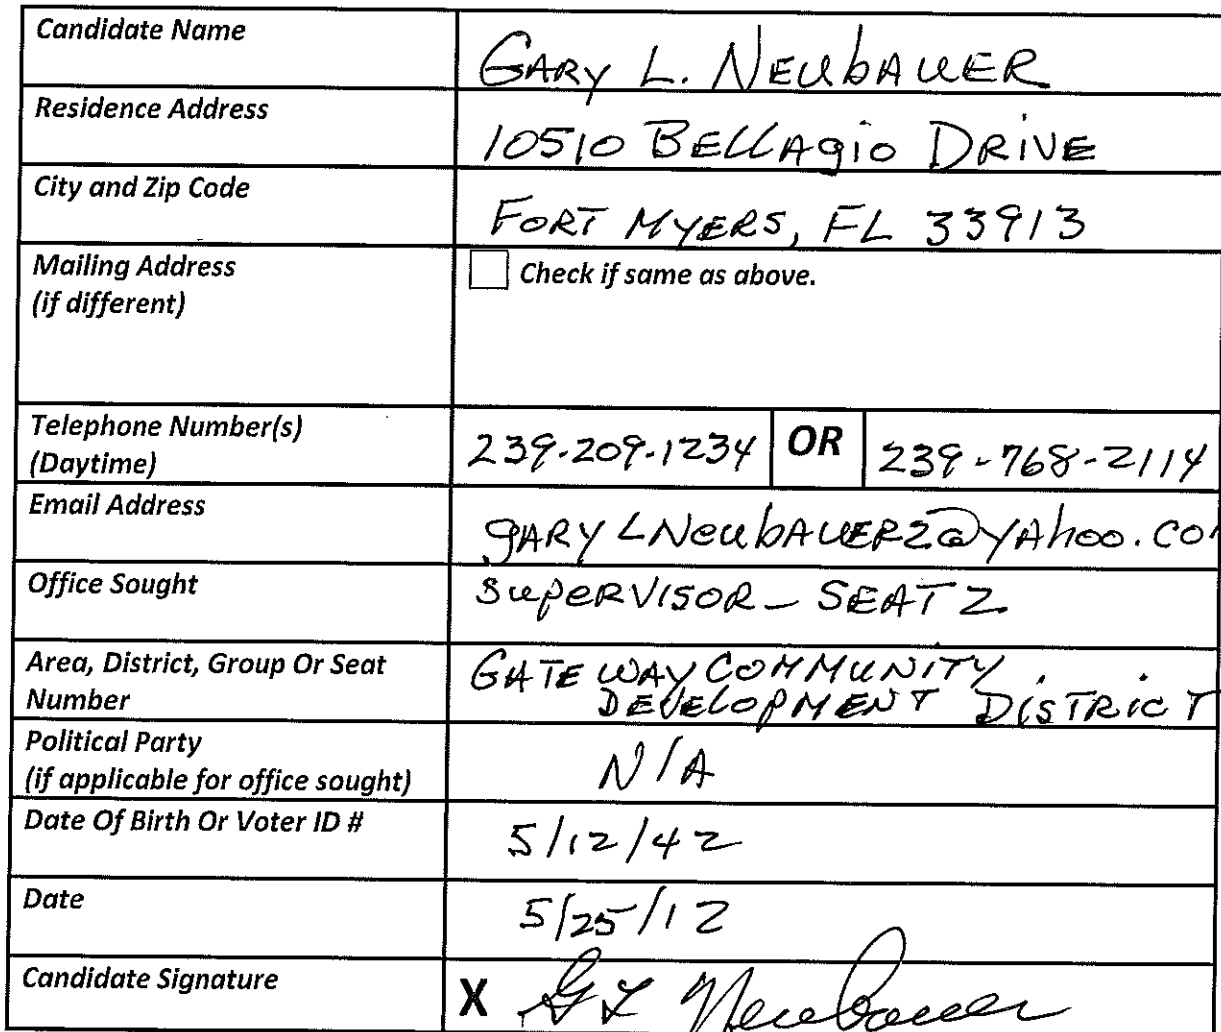 Candidate Name
GARY L. NEUBAUER
Residence Address
10510 BELLAgio DRIVE
City and Zip Code
FORT MYERS, FL 33913
Mailing Address
(if different)
Check if same as above.
Telephone Number(s)
(Daytime)
239-209-1234 OR 239-768-2114
Email Address
gARY LNeubAUER2@YAhoo.com
Office Sought
SupERVISOR - SEAT 2
Area, District, Group Or Seat
Number
GATEWAY COMMUNITY
DEVELOPMENT DiSTRicT
Political Party
(if applicable for office sought)
N/A
Date Of Birth Or Voter ID #
5/12/42
Date
5/25/12
Candidate Signature
X GL Neubauer